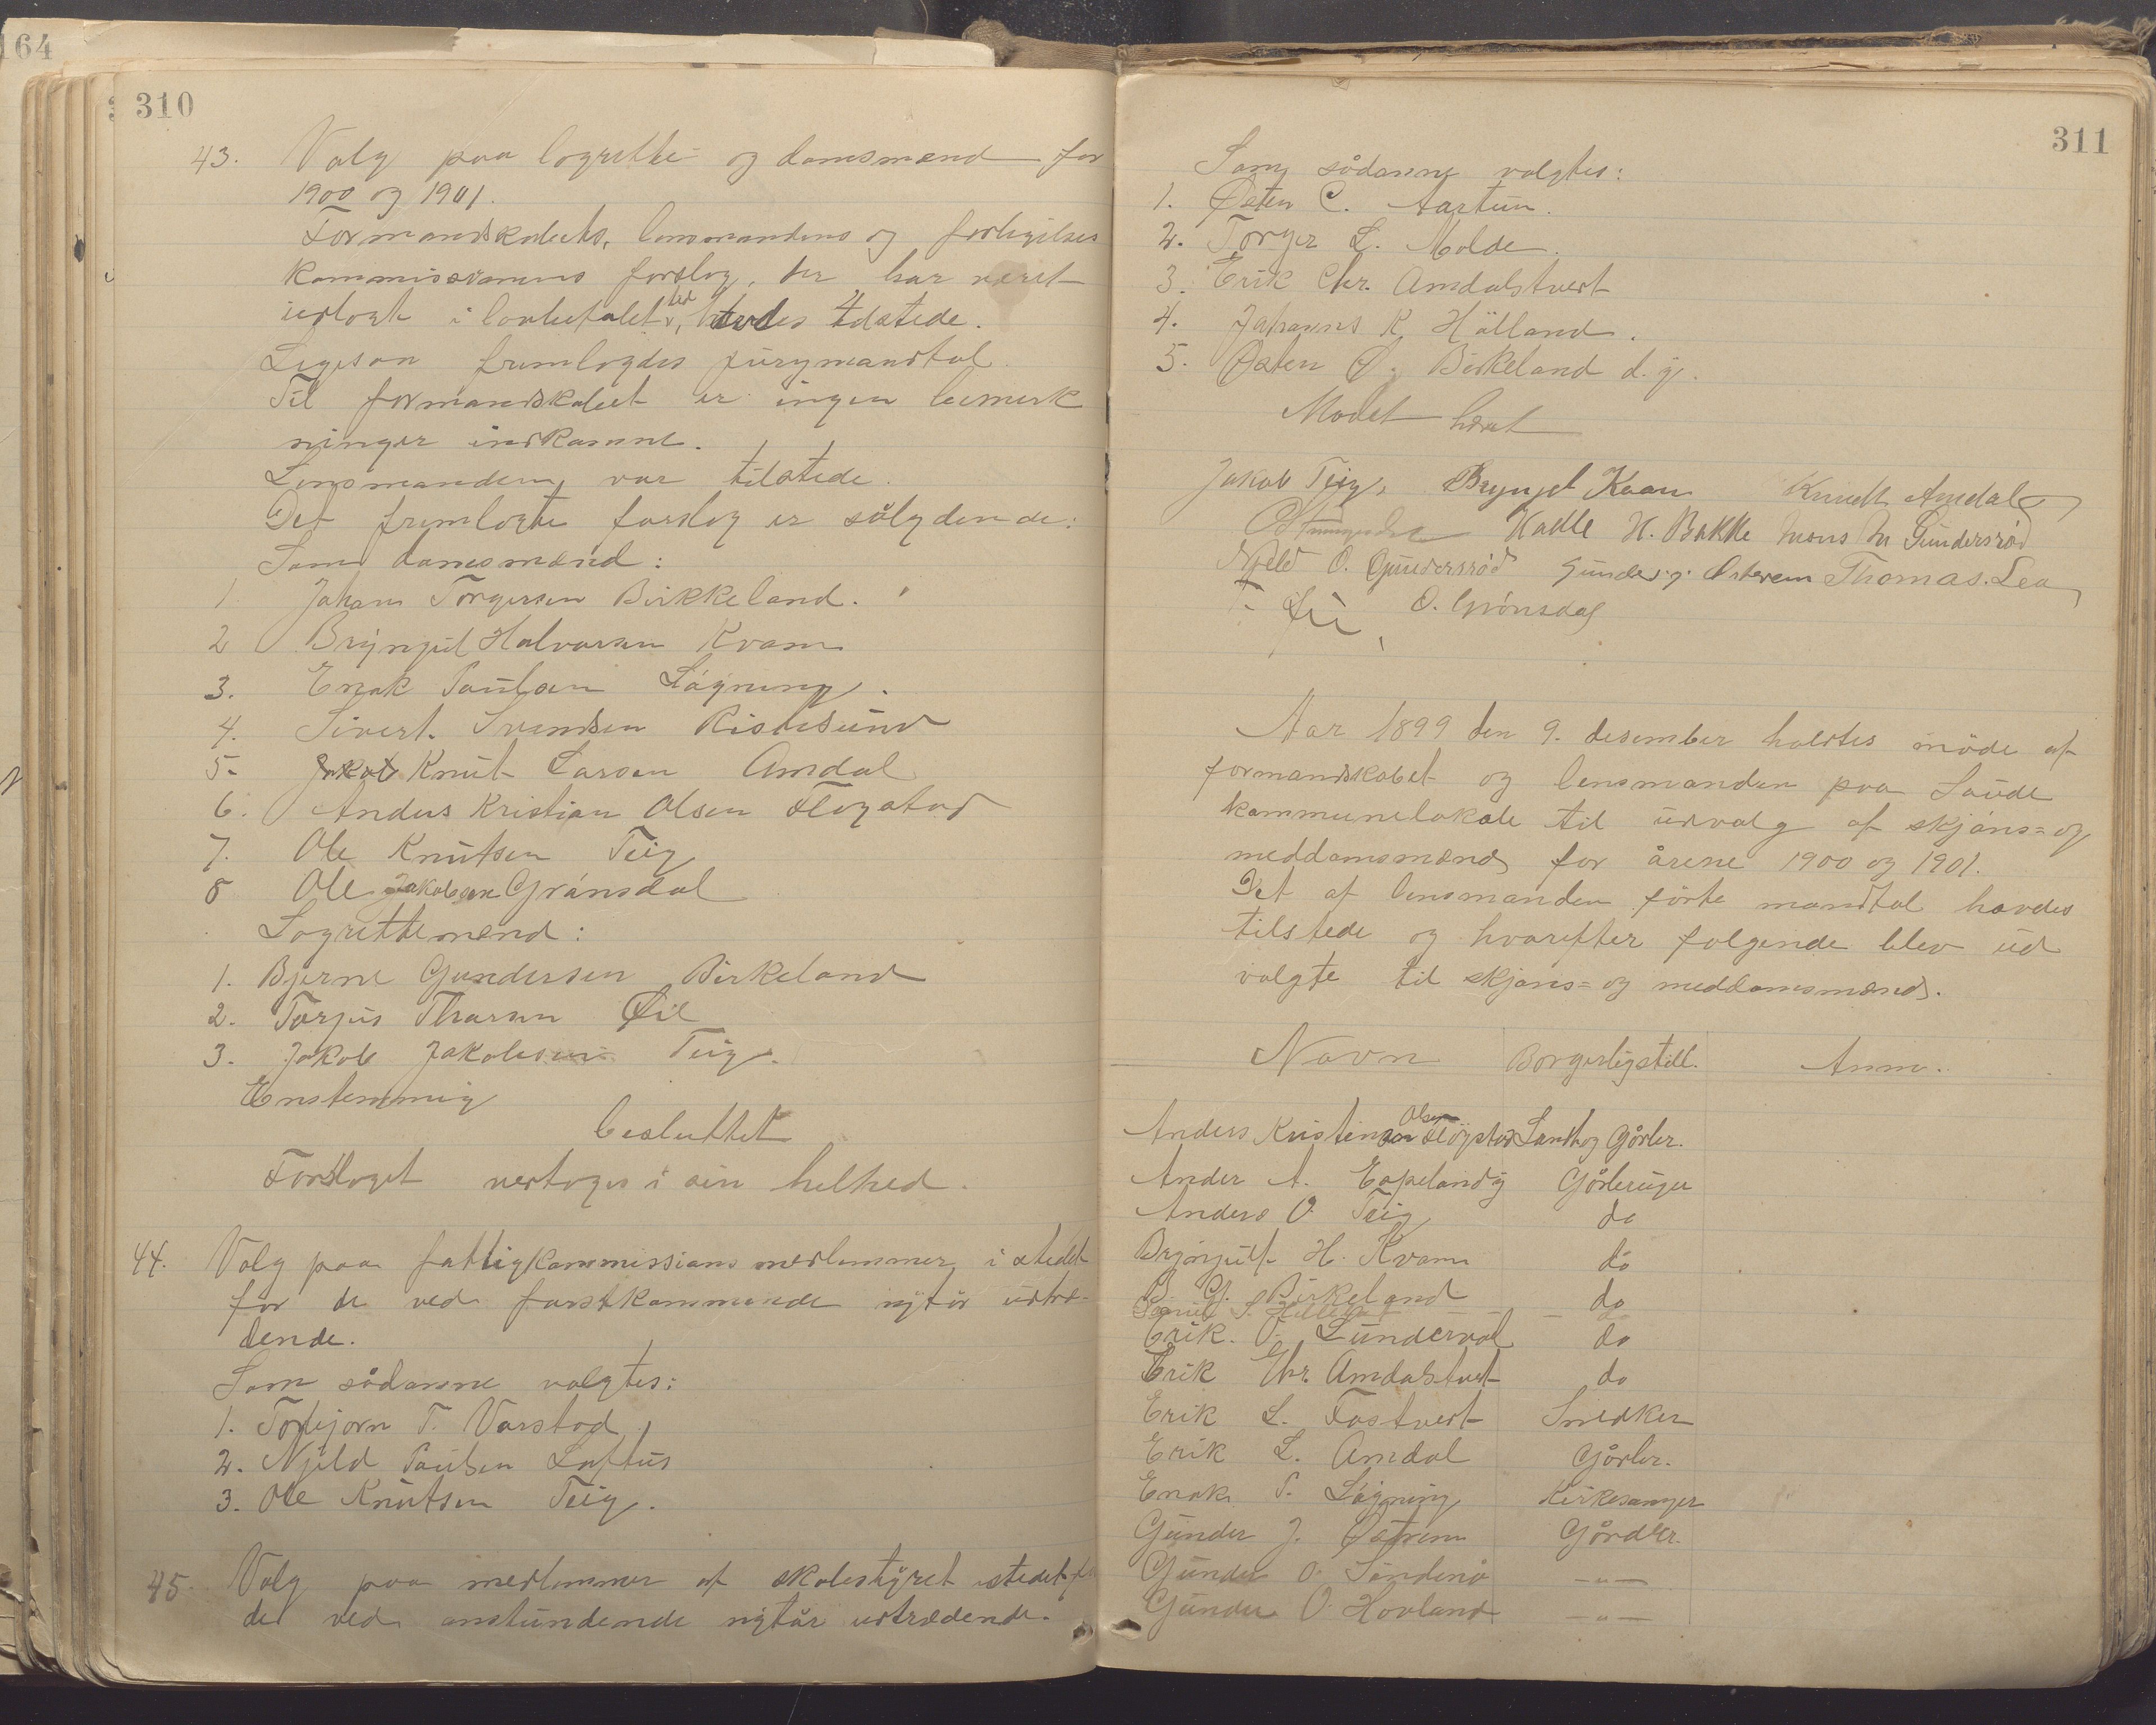 164
310
43. Valg paa lagrette- og domsmænd for
1900 og 1901.
Formandskabets, lensmandens og forligelses
kommissionens forslag, der har været
udlagt i lovbefalet tid, havdes tilstede.
Ligesaa fremlagdes jurymandtal.
Til formandskabet er ingen bemerk
ninger indkomne.
Lensmanden var tilstede.
Det fremlagte forslag er sålydende:
Som domsmænd:
1. Johan Torgersen Birkeland.
2 Brynjul Halvorsen Kvam
3. Enok Paulsen Løgning.
4. Sivert Svendsen Ristesund
5. Knut Larsen Amdal
6. Anders Kristian Olsen Fløgstad
7. Ole Knutsen Teig
8 Ole Jakobsen Grønsdal
Lagrettemænd:
1. Bjerne Gundersen Birkeland
2. Torjus Thorsen Øie
3. Jakob Jakobsen Teig.
Enstemmig
besluttet
Forslaget vertoges i sin helhed.
44. Valg paa fattigkommissions medlemmer i stedet
for de ved førstkommende nytår udtræ-
dende.
Som sådanne valgtes:
1. Torbjørn T. Varstad
2. Njeld Paulsen Loftus
3. Ole Knutsen Teig.
45. Valg paa medlemmer af skolestyret istedetfor
de ved anstundende nytår udtrædende.
311
Som sådanne valgtes:
1. Østen C. Aartun.
2. Torger L. Molde.
3. Erik Chr. Amdalstvert
4. Johannes K. Hålland.
5. Østen Ø. Birkeland d. y.
Mødet hævet
Jakob Teig, Brynjel Kvam Knudt Amdal
Kadle H. Bakke Mons M Gundersrød
Njeld O. Gundersrød Gunder J. Østrem Thomas. Lea
T. Øie O. Grönsdal
Aar 1899 den 9. desember holdtes möde af
formandskabet og lensmanden paa Saude
kommunelokale til udvalg af skjøns- og
meddomsmænd for årene 1900 og 1901.
Det af lensmanden förte mandtal havdes
tilstede og hvorefter følgende blev ud
valgte til skjøns- og meddomsmænd.
Navn Borgerligstill. Anm.
Anders Kristensen Olsen Fløgstad Landh. og Gårbr.
Ander A. Espeland y Gårbruger
Anders O. Teig do
Brynjulf H. Kvam do
B. G. Birkeland do
Erik. O. Lunderval do
Erik Chr. Amdalstvert do
Erik L. Fostvert Snedker
Erik L. Amdal Gårbr.
Enok P. Løgning Kirkesanger
Gunder J. Østrem Gårdbr.
Gunder O. Søndenå — " —
Gunder O. Hovland — " —